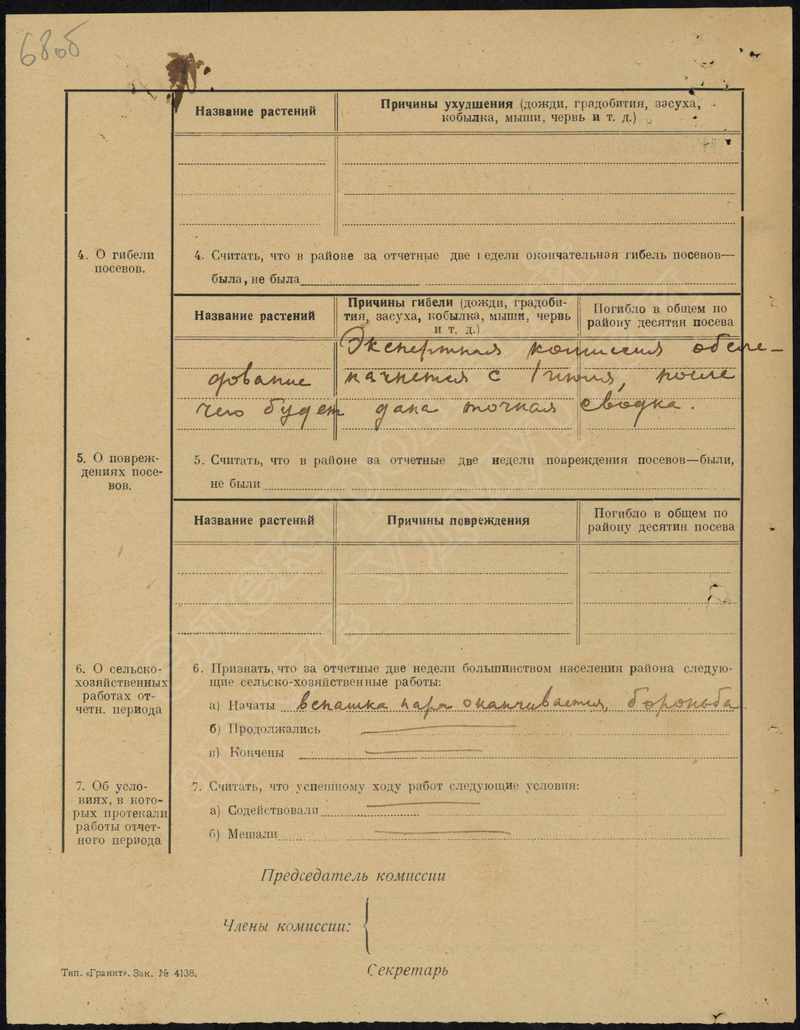 68об
Название растений
Причины ухудшения (дожди, градобития, засуха,
кобылка, мыши, червь и т. д.)
4. О гибели
посевов.
4. Считать, что в районе за отчетные две недели окончательная гибель посевов—
была, не была
Название растений
Причины гибели (дожди, градоби-
тия, засуха, кобылка, мыши, червь
и т. д.)
Погибло в общем по
району десятин посева
Экспертная комиссия обсле-
дование начнется с 1 июня, после
чего будет дана точная сводка.
5. О повреж-
дениях посе-
вов.
5. Считать, что в районе за отчетные две недели повреждения посевов—были,
не были
Название растений
Причины повреждения
Погибло в общем по
району десятин посева
6. О сельско-
хозяйственных
работах от-
четн. периода
6. Признать, что за отчетные две недели большинством населения района следую-
щие сельско-хозяйственные работы:
а) Начаты вспашка пара оканчивается, бороньба
б) Продолжались
в) Кончены
7. Об усло-
виях, в кото-
рых протекали
работы отчет-
ного периода
7. Считать, что успешному ходу работ следующие условия:
а) Содействовали
б) Мешали
Председатель комиссии
Члены комиссии:
Секретарь
Тип. «Гранит». Зак. № 4138.